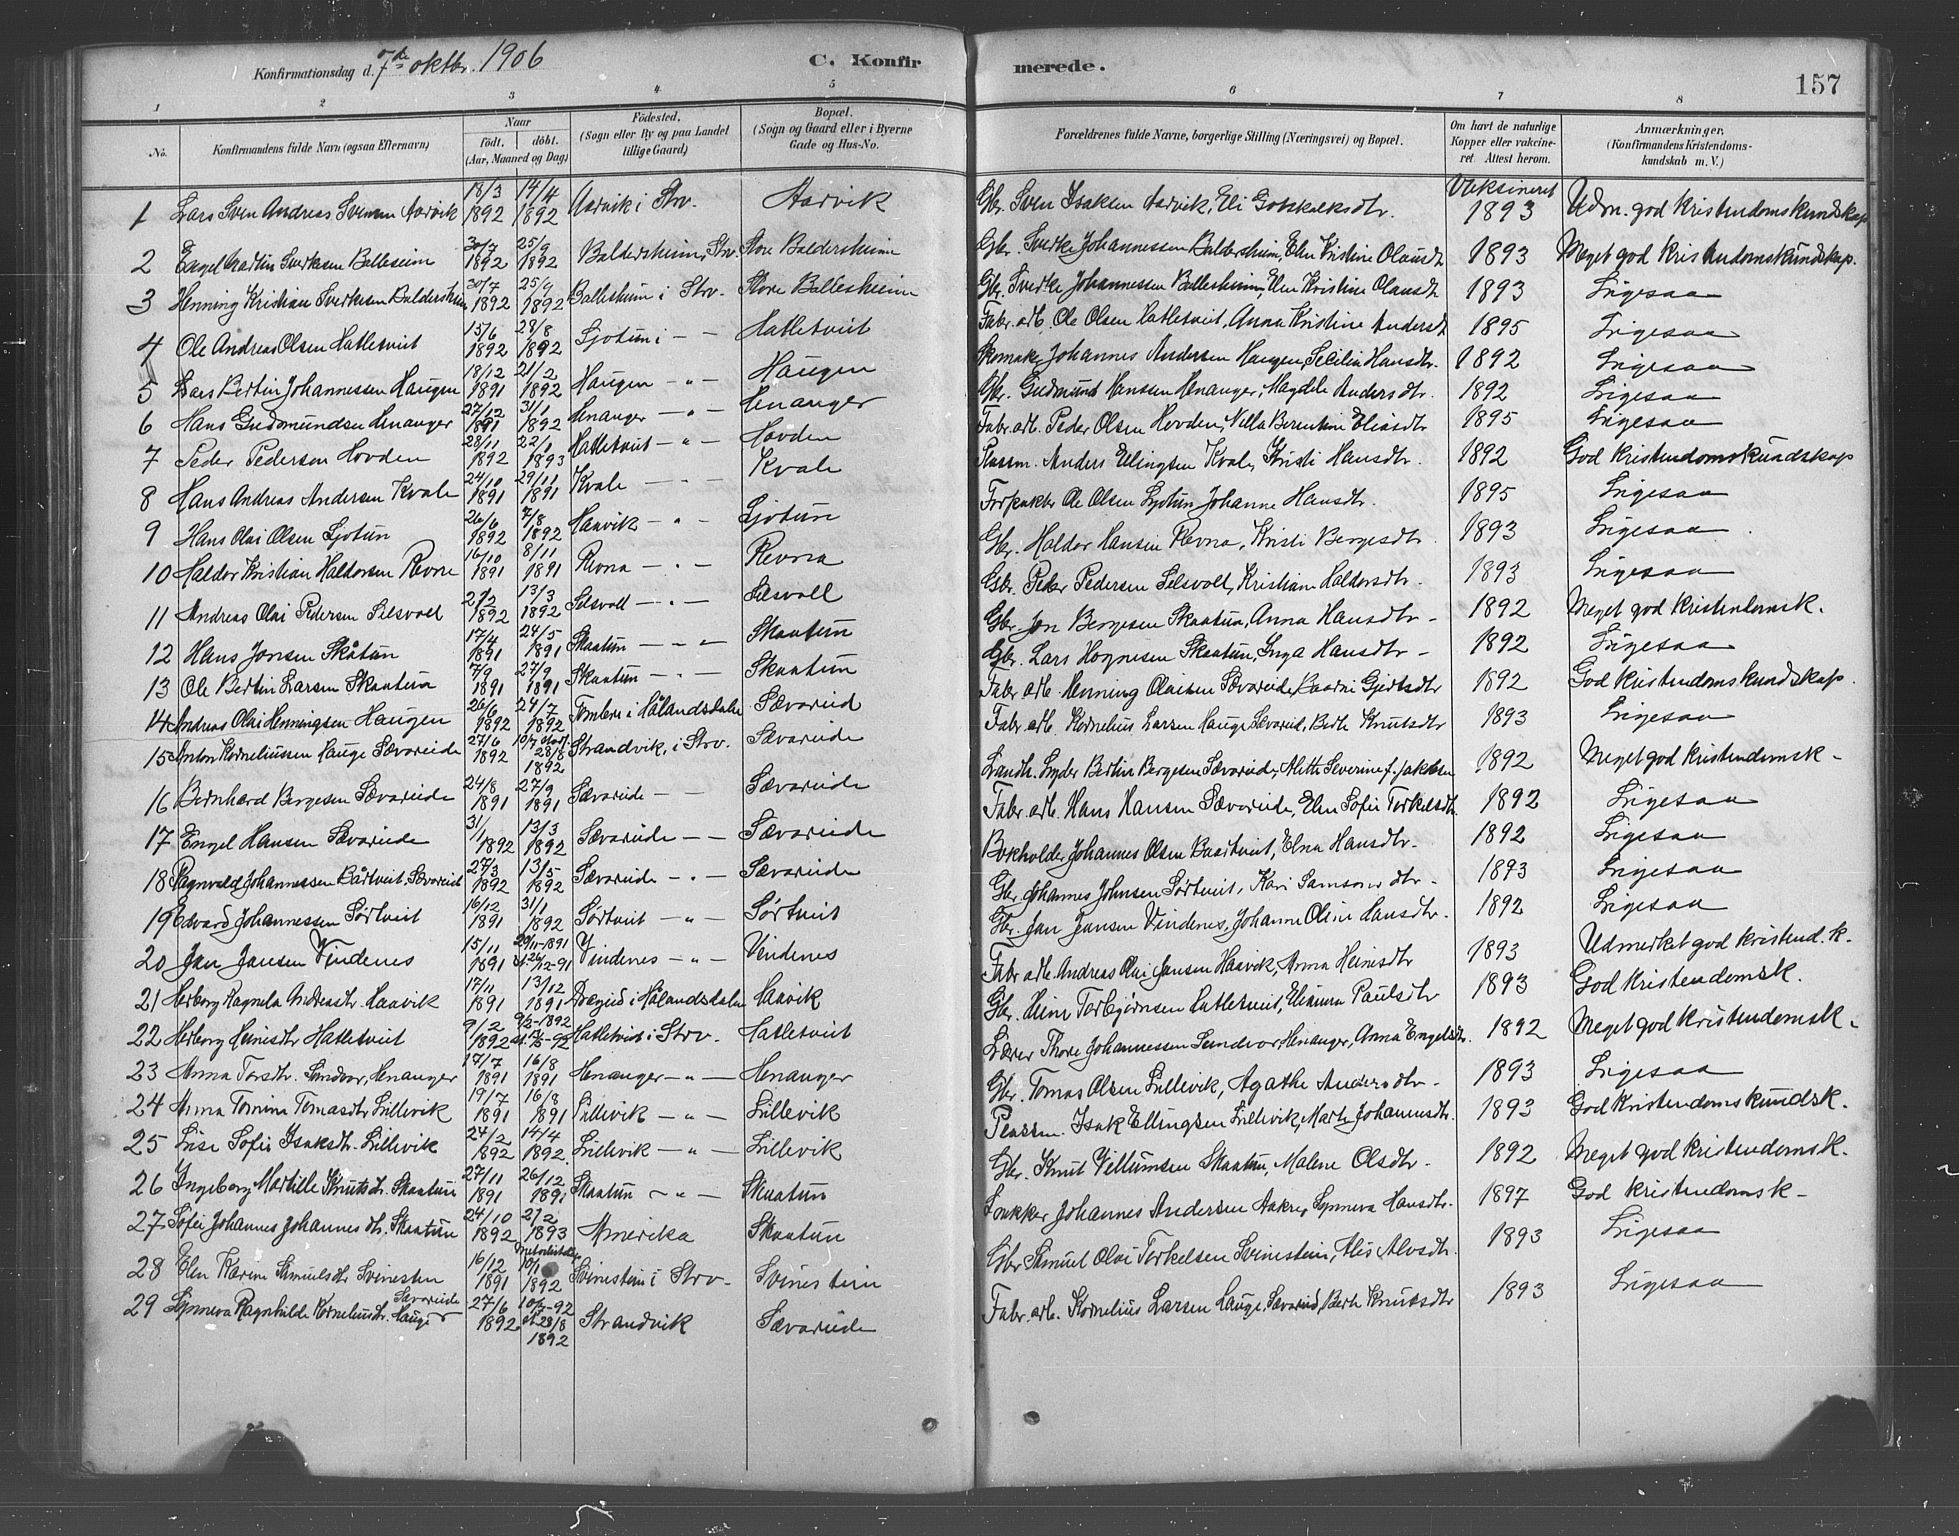 Konfirmationsdag d. 7de oktbr. 1906
C. Konfirmerede. 157
1 2 3 4 5 6 7 8
No. Konfirmandens fulde Navn (ogsaa Efternavn) Naar født. døbt. (Aar, Maaned og Dag) Fødested. (Sogn eller By og paa Landet tillige Gaard) Bopæl. (Sogn og Gaard eller i Byerne Gade og Hus-No. Forældrenes fulde Navne, borgerlige Stilling (Næringsvei) og Bopæl. Om havt de naturlige Kopper eller vakcineret. Attest herom. Anmærkninger. (Konfirmandens Kristendomskundskab m. V.)
1 Lars Sven Andreas Svensen Aarvik 18/3 1892 14/4 1892 Aarvik i Strv. Aarvik Gbr. Sven Isaksen Aarvik, Eli Gotskalksdtr. Vaksineret 1893 Udm. god Kristendomskundskap
2 Engel Martin Sverkesen Balleseim 30/7 1892 25/9 1892 Baldersheim, Strv. Store Baldersheim Gbr. Sverke Johannessen Baldersheim, Elen Kristine Olausdt 1893 Meget god Kristendomskundskap.
3 Henning Kristian Sverkesen Baldersheim 30/7 1892 25/9 1892 Ballesheim i Strv. Store Ballesheim Gbr. Sverke Johannessen Ballesheim, Elen Kristine Olausdt 1893 Ligesaa
4 Ole Andreas Olsen Hatletveit 15/6 1892 28/8 1892 Ljotun i - - Hatletveit Fabr. arb. Ole Olsen Hatletveit, Anna Kristine Andersdt 1895 Ligesaa
5 Lars Bertin Johannessen Haugen 18/12 1891 21/2 1892 Haugen - " - Haugen Skomak. Johannes Andersen Haugen, Secilia Hansdtr. 1892 Ligesaa
6 Hans Gudmundsen Henanger 27/12 1891 31/1 1892 Henanger - " - Henanger Gbr. Gudmund Hansen Henanger, Magdele Andersdtr. 1892 Ligesaa
7 Peder Pedersen Hovden 28/11 1892 22/1 1893 Hatletveit - " - Hovden Fabr. arb. Peder Olsen Hovden, Villa Berentine Eliasdtr 1895 Ligesaa
8 Hans Andreas Andersen Kvale 24/10 1891 29/11 1891 Kvale - " - Kvale Plassm. Anders Ellingsen Kvale, Kristi Hansdtr. 1892 God Kristendomskundskap
9 Hans Olai Olsen Ljotun 26/6 1892 7/8 1892 Haavik - " - Ljotun Ole Olsen Ljotun Johanne Hansdtr. 1895 Ligesaa
10 Haldor Kristian Haldorsen Revne 16/10 1891 8/11 1891 Revna - " - Revna Gbr. Haldor Hansen Revna, Kristi Bergesdtr. 1893 Ligesaa
11 Andreas Olai Pedersen Selsvoll 21/2 1892 13/3 1892 Selsvoll - " - Selsvoll Gbr. Peder Pedersen Selsvoll, Kristian Haldorsdtr. 1893 Ligesaa
12 Hans Jonsen Skåtun 17/4 1891 24/5 1891 Skaatun - " - Skaatun Gbr. Jon Bergesen Skaatun, Anna Hansdtr - 1892 Meget god Kristendomsk.
13 Ole Bertin Larsen Skaatun 7/9 1891 27/9 1891 Skaatun - " - Skaatun Gbr. Lars Hognesen Skaatun, Inga Hansdtr - 1892 Ligesaa
14 Andreas Olai Henningsen Haugen 26/6 1892 24/7 1892 Tombre i Hålandsdalen Sævareid Fabr. arb. Henning Olaisen Sævareide, Gjertsdtr 1892 God Kristendomskundskap.
15 Anton Korneliussen Hauge Sævareide 27/6 1892 10/7 28/8 1892 Strandvik, i Strv. Sævareide Fabr. arb. Kornelius Larsen Hauge, Sævareid, Berte Knutsdtr 1893 Ligesaa
16 Bernhard Bergesen Sævareide 24/8 1891 27/9 1891 Sævareide - - Sævareide Landh. Bertin Bergesen Sævareide, Mette Severine f. Jakobsen 1892 Meget god Kristendomsk -
17 Engel Hansen Sævareide 31/1 1892 13/3 1892 Sævareide - - Sævareide Fabr. arb. Hans Hansen Sævareide, Elen Sofie Torkelsdtr. 1892 Ligesaa
18 Ragnvald Johannessen Båtveit, Sævareid 27/3 1892 13/5 1892 Sævareide - " - Sævareide Bokholder Johannes Olsen Baatveit, Elna Hansdtr. 1892 Ligesaa
19 Edvard Johannessen Sørtveit 16/12 1891 31/1 1892 Sørtveit - " - Sørtveit Gbr. Johannes Johnsen Sørtveit, Kari Samsonsdtr - 1893 Ligesaa
20 Jan Jansen Vindenes 15/11 1891 29/11-1891 st. 26/12-91 Vindenes - " - Vindenes Gbr. Jan Jansen Vindenes, Johanne Oline Hansdtr. 1892 Ligesaa
21 Herborg Ragnela Andreasdtr. Haavik 17/11 1891 13/12 1891 i Hålandsdalen Haavik Fabr arb. Andreas Olai Jansen Haavik, Anna Heinesdtr 1893 Udmerket god Kristend. K.
22 Herborg Heinesdtr Hatletveit 9/2 1892 9/2-1892 Hatletveit i Strv. Hatletveit Gbr. Heine Torbjørnsen Hatletveit, Elianna Paulsdtr 1893 God Kristendomsk.
23 Anna Torsdtr. Sandvor, Henanger 17/7 1891 16/8 1891 Henanger - " - Henanger Lærer Thore Johannessen Sandvor, Henanger, Anna Engelsdtr. 1892 Meget god Kristendomsk.
24 Anna Tomina Tomasdtr Lillevik 19/7 1891 16/8 1891 Lillevik - " - Lillevik Gbr. Tomas Olsen Lillevik, Agathe Andersdtr - 1893 Ligesaa
25 Lise Sofie Isaksdtr. Lillevik 24/2 1892 14/4 1892. Lillevik - " - Lillevik Plassm. Isak Ellingsen Lillevik, Marte Johannesdtr. 1893 God Kristendomskundsk.
26 Ingeborg Martille Knutsdtr. Skaatun 27/11 1891 26/12 1891 Skaatun - " - Skaatun Gbr. Knut Villumsen Skaatun, Malene Olsdtr - 1892 Meget god Kristendomsk.
27 Sofie Johannes Johannesdtr. Skaatun 24/10 1892 21/2 1893 Amerika Skaatun Snekker Johannes Andersen Aakre, Synneva Hansdtr. 1897 God Kristendomsk -
28 Elen Karine Samuelsdtr Svinesten 16/12 1891 10/1 1892 Svinestein i Strv. Svinestein Gbr Samuel Olai Torkelsen Svinestein, Alis Alvsdtr. 1893 Ligesaa
29 Synneva Ragnhilde Korneliusdtr. Hauge Sævareide 27/6 1892 10/7-92 st. 28/8 1892 Strandvik Sævareide Fabr. arb. Kornelius Larsen Hauge, Sævareid, Berte Knutsdtr 1893 Ligesaa